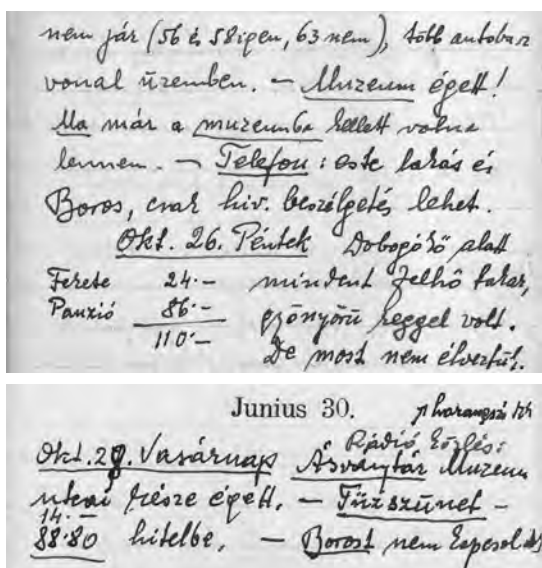 nem jár (56 és 58 igen, 63 nem), több autobusz
vonal üzemben. – Muzeum égett!
Ma már a muzeumba kellett volna
lennem. – Telefon: este lakás és
Boros, csak hiv. beszélgetés lehet.
Okt. 26. Péntek Dobogókő alatt
Fekete 24.– mindent felhő takar,
Panzió 86.– gyönyörü reggel volt.
110.– De most nem élveztük.
Junius 30.
Rádió közlés:
Okt. 28. Vasárnap Ásványtár Muzeum
utcai része égett. – Tüzszünet –
14.–
88.80 hitelbe, – Borost nem kapcsol